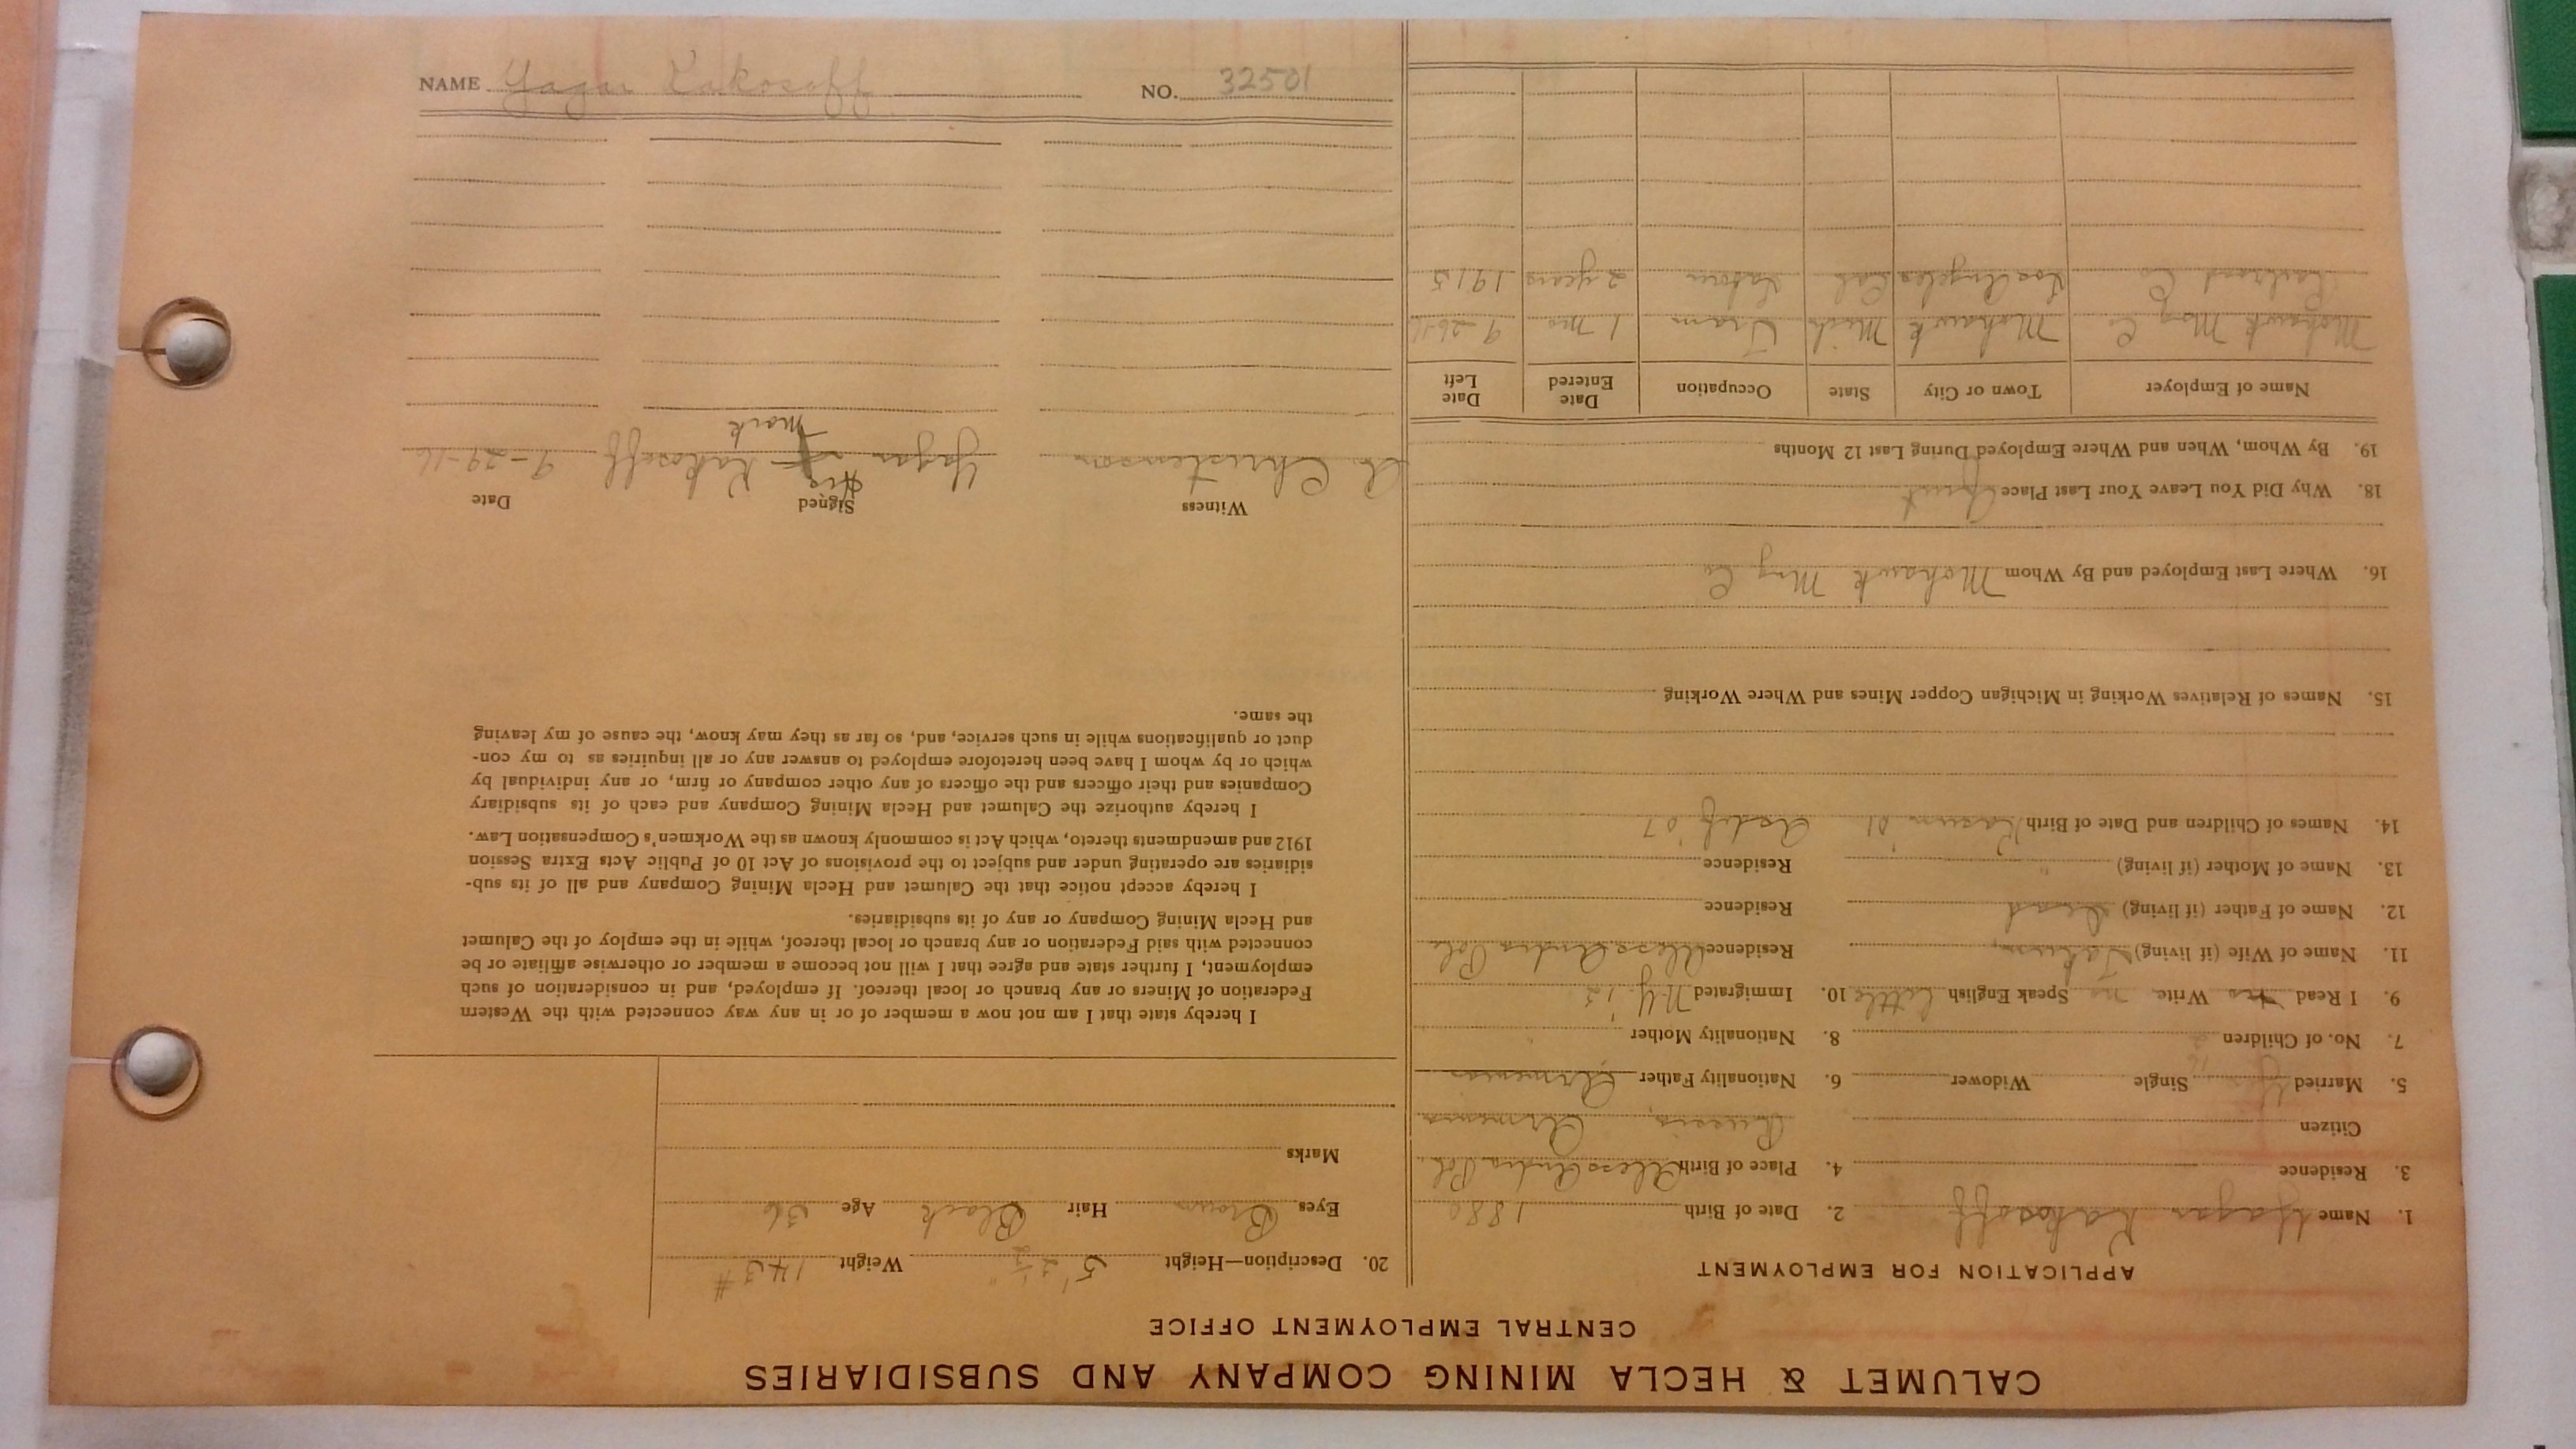 CALUMET & HECLA MINING COMPANY AND SUBSIDIARIES
CENTRAL EMPLOYMENT OFFICE
APPLICATION FOR EMPLOYMENT
1. Name Yagar Kakosoff 2. Date of Birth 1880
3. Residence 4. Place of Birth Alessandra Pol.
Citizen Russia, Armenia
5. Married Yes Single Widower 6. Nationality Father Armenia
7. No. of Children 2 8. Nationality Mother "
9. I Read no Write no Speak English Little 10. Immigrated N.Y. '12
11. Name of Wife (if living) Residence Alessandra Pol.
12. Name of Father (if living) Dead Residence
13. Name of Mother (if living) " Residence
14. Names of Children and Date of Birth '01 '07
15. Names of Relatives Working in Michigan Copper Mines and Where Working
16. Where Last Employed and By Whom Mohawk Mng Co
18. Why Did You Leave Your Last Place Quit
19. By Whom, When and Where Employed During Last 12 Months
Name of Employer Town or City State Occupation Date Entered Date Left
Mohawk Mng Co Mohawk Mich Tram 1 mo 9-26-16
Railroad Co Los Angeles Cal Labour 2 years 1915
20. Description—Height 5' 2½" Weight 143#
Eyes Brown Hair Black Age 36
Marks
I hereby state that I am not now a member of or in any way connected with the Western
Federation of Miners or any branch or local thereof. If employed, and in consideration of such
employment, I further state and agree that I will not become a member or otherwise affiliate or be
connected with said Federation or any branch or local thereof, while in the employ of the Calumet
and Hecla Mining Company or any of its subsidiaries.
I hereby accept notice that the Calumet and Hecla Mining Company and all of its sub-
sidiaries are operating under and subject to the provisions of Act 10 of Public Acts Extra Session
1912 and amendments thereto, which Act is commonly known as the Workmen's Compensation Law.
I hereby authorize the Calumet and Hecla Mining Company and each of its subsidiary
Companies and their officers and the officers of any other company or firm, or any individual by
which or by whom I have been heretofore employed to answer any or all inquiries as to my con-
duct or qualifications while in such service, and, so far as they may know, the cause of my leaving
the same.
Witness Signed Date
his
Christenson Yagar X Kakosoff 9-29-16
mark
NAME Yagar Kakosoff NO. 32501